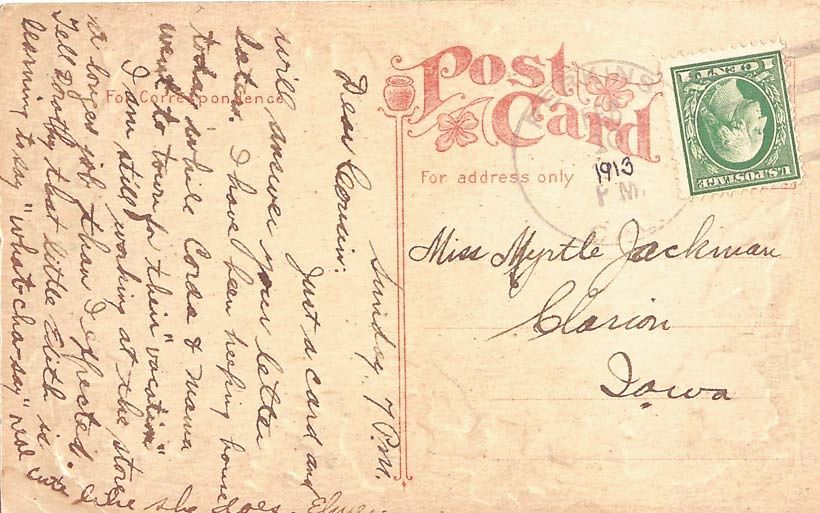 Post
Card
For Correspondence
For address only
HOSKINS
1913
P.M.
1 CENT 1
U.S. POSTAGE
Miss Myrtle Jackman
Clarion
Iowa
Sunday, 7 P.M.
Dear Cousin:
Just a card and
will answer your letter
later. I have been keeping house
today while Corda & Mama
went to town for their "vocation"
I am still working at the store
a longer job than I expected.
Tell Dorothy that little Edith is
learning to say "what-cha-say" real cute like she does.